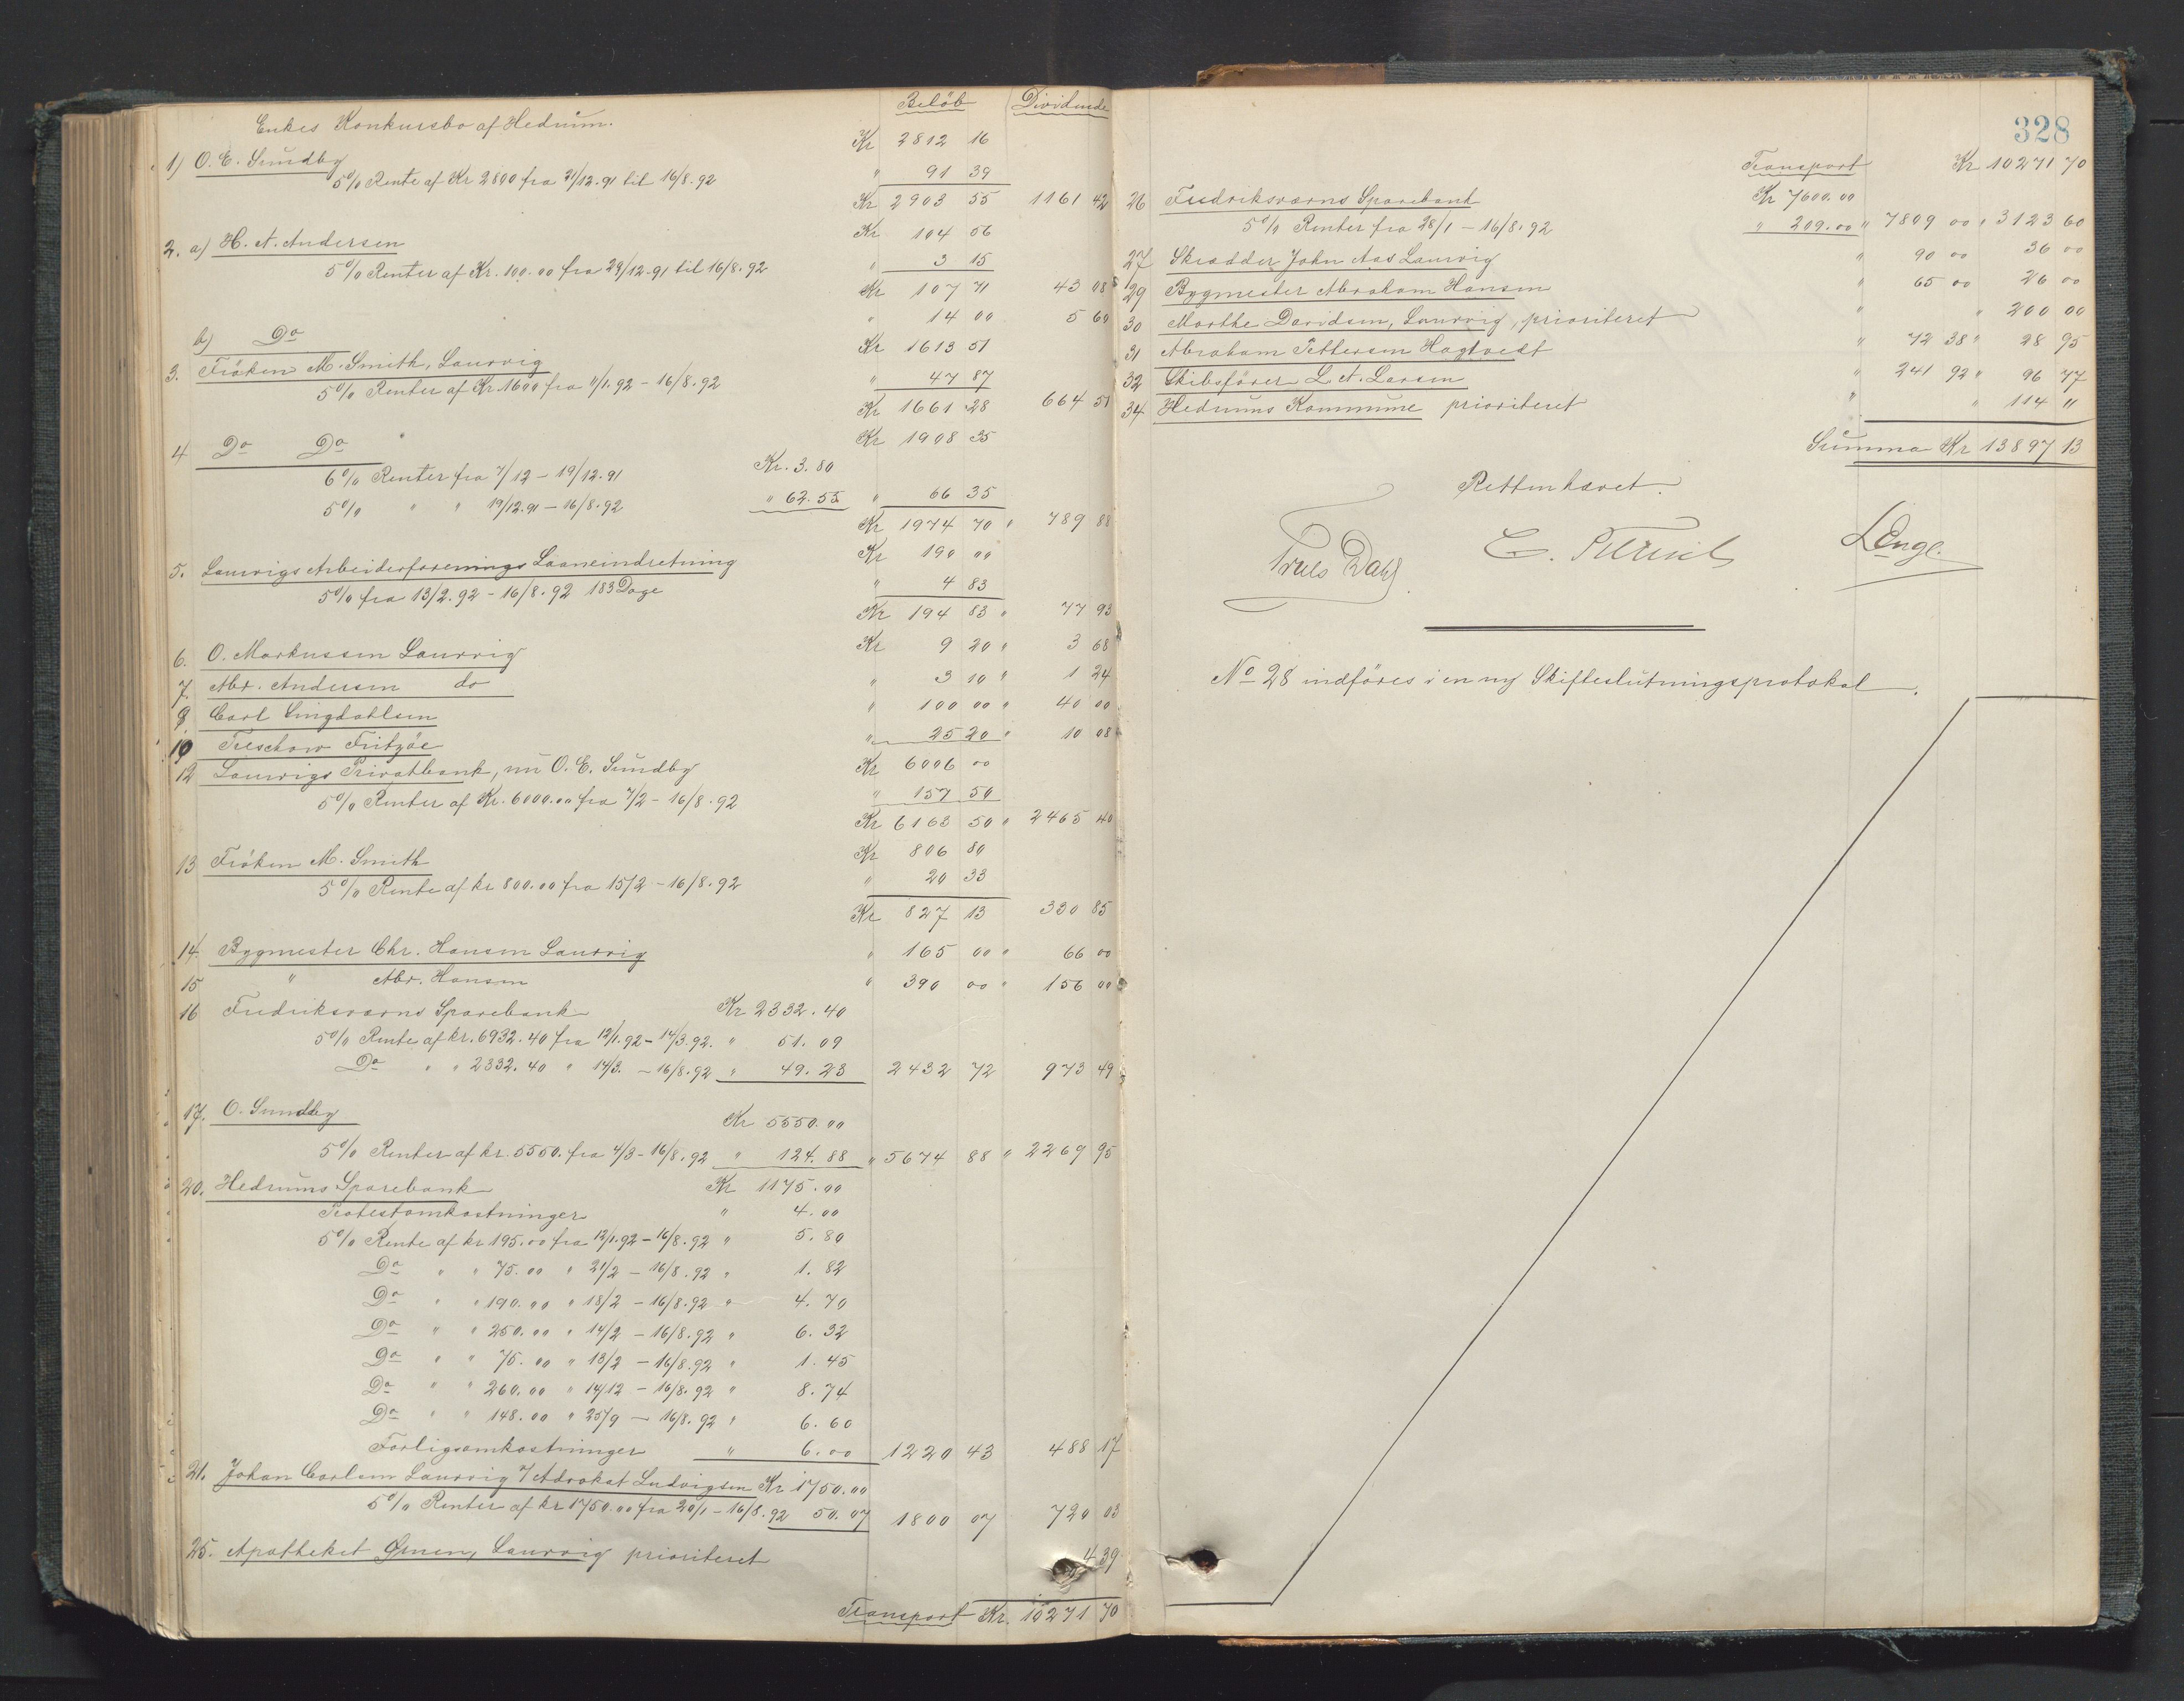 Beløb Dividende
Enkes Konkursbo af Hedrum.
1) O. E. Sundby Kr 2812 16
5% Rente af Kr 2800 fra 21/12.91 til 16/8.92 " 91 39
Kr 2903 55 1161 42
2. a) H. A. Andersen Kr 104 56
5% Renter af Kr. 100.00 fra 29/12.91 til 16/8.92 " 3 15
Kr 107 71 43 08
b) Do " 14 00 5 60
3. Frøken M. Smith, Laurvig Kr 1613 51
5% Renter af Kr. 1600 fra 11/1.92 - 16/8.92 " 47 87
Kr 1661 28 664 51
4 Do Do Kr 1908 35
6% Renter fra 7/12 - 19/12.91 Kr. 3.80
5% " " 19/12.91 - 16/8.92 " 62.55 " 66 35
Kr 1974 70 " 789 88
5. Laurvigs Arbeiderforenings Laaneindretning Kr 190 00
5% fra 13/2.92 - 16/8.92 183 Dage " 4 83
Kr 194 83 " 77 93
6. O. Markussen Laurvig Kr 9 20 " 3 68
7. Abr. Andersen do " 3 10 " 1 24
8 Carl Lingdahlsen " 100 00 " 40 00
10 Treschow Fritzöe " 25 20 " 10 08
12 Laurvigs Privatbank, nu O. E. Sundby Kr 6006 00
5% Renter af Kr. 6000.00 fra 7/2 - 16/8.92 " 157 50
Kr 6163 50 " 2465 40
13 Frøken M. Smith Kr 806 80
5% Rente af kr 800.00 fra 15/2 - 16/8.92 " 20 33
Kr 827 13 330 85
14 Bygmester Chr. Hansen Laurvig " 165 00 " 66 00
15 " Abr. Hansen " 390 00 " 156 00
16 Fredriksværns Sparebank Kr 2332.40
5% Rente af kr. 6932.40 fra 12/1.92 - 14/3.92. " 51.09
Do " " 2332.40 " 14/3. - 16/8.92 " 49.23 2432 72 973 49
17. O. Sundby Kr 5550.00
5% Renter af kr. 5550. fra 4/3 - 16/8.92 " 124.88 " 5674 88 " 2269 95
20. Hedrums Sparebank Kr 1175.00
Protestomkostninger " 4.00
5% Rente af kr 195.00 fra 12/1.92 - 16/8.92 " 5.80
Do " " 75.00 " 21/2 - 16/8.92 " 1.82
Do " " 190.00 " 18/2 - 16/8.92 " 4.70
Do " " 250.00 " 14/2 - 16/8.92 " 6.32
Do " " 75.00 " 13/2 - 16/8.92 " 1.45
Do " " 260.00 " 14/12 - 16/8.92 " 8.74
Do " " 148.00 " 25/9 - 16/8.92 " 6.60
Forligsomkostninger " 6.00 1220 43 488 17
21. Johan Carlsen Laurvig v/ Advokat Ludvigsen Kr 1750.00
5% Renter af kr 1750.00 fra 20/1 - 16/8.92 50.07 1800 07 720 03
25. Apotheket Ørnen, Laurvig prioriteret 4 39
Transport Kr. 10271 70
328
Transport Kr 10271 70
26 Fredriksværns Sparebank Kr 7600.00
5% Renter fra 28/1 - 16/8.92 " 209.00 " 7809 00 " 3123 60
27 Skrædder John Aas Laurvig " 90 00 36 00
29 Bygmester Abraham Hansen " 65 00 26 00
30 Marthe Davidsen, Laurvig, prioriteret " " 200 00
31 Abraham Pettersen Hagtvedt " 72 38 " 28 95
32 Skibsfører L. A. Larsen " 241 92 " 96 77
34 Hedrums Kommune prioriteret " " 114 "
Summa Kr 13897 13
Retten hævet.
Truls Dahl L Enge.
No 28 indføres i en ny Skifteslutningsprotokol.